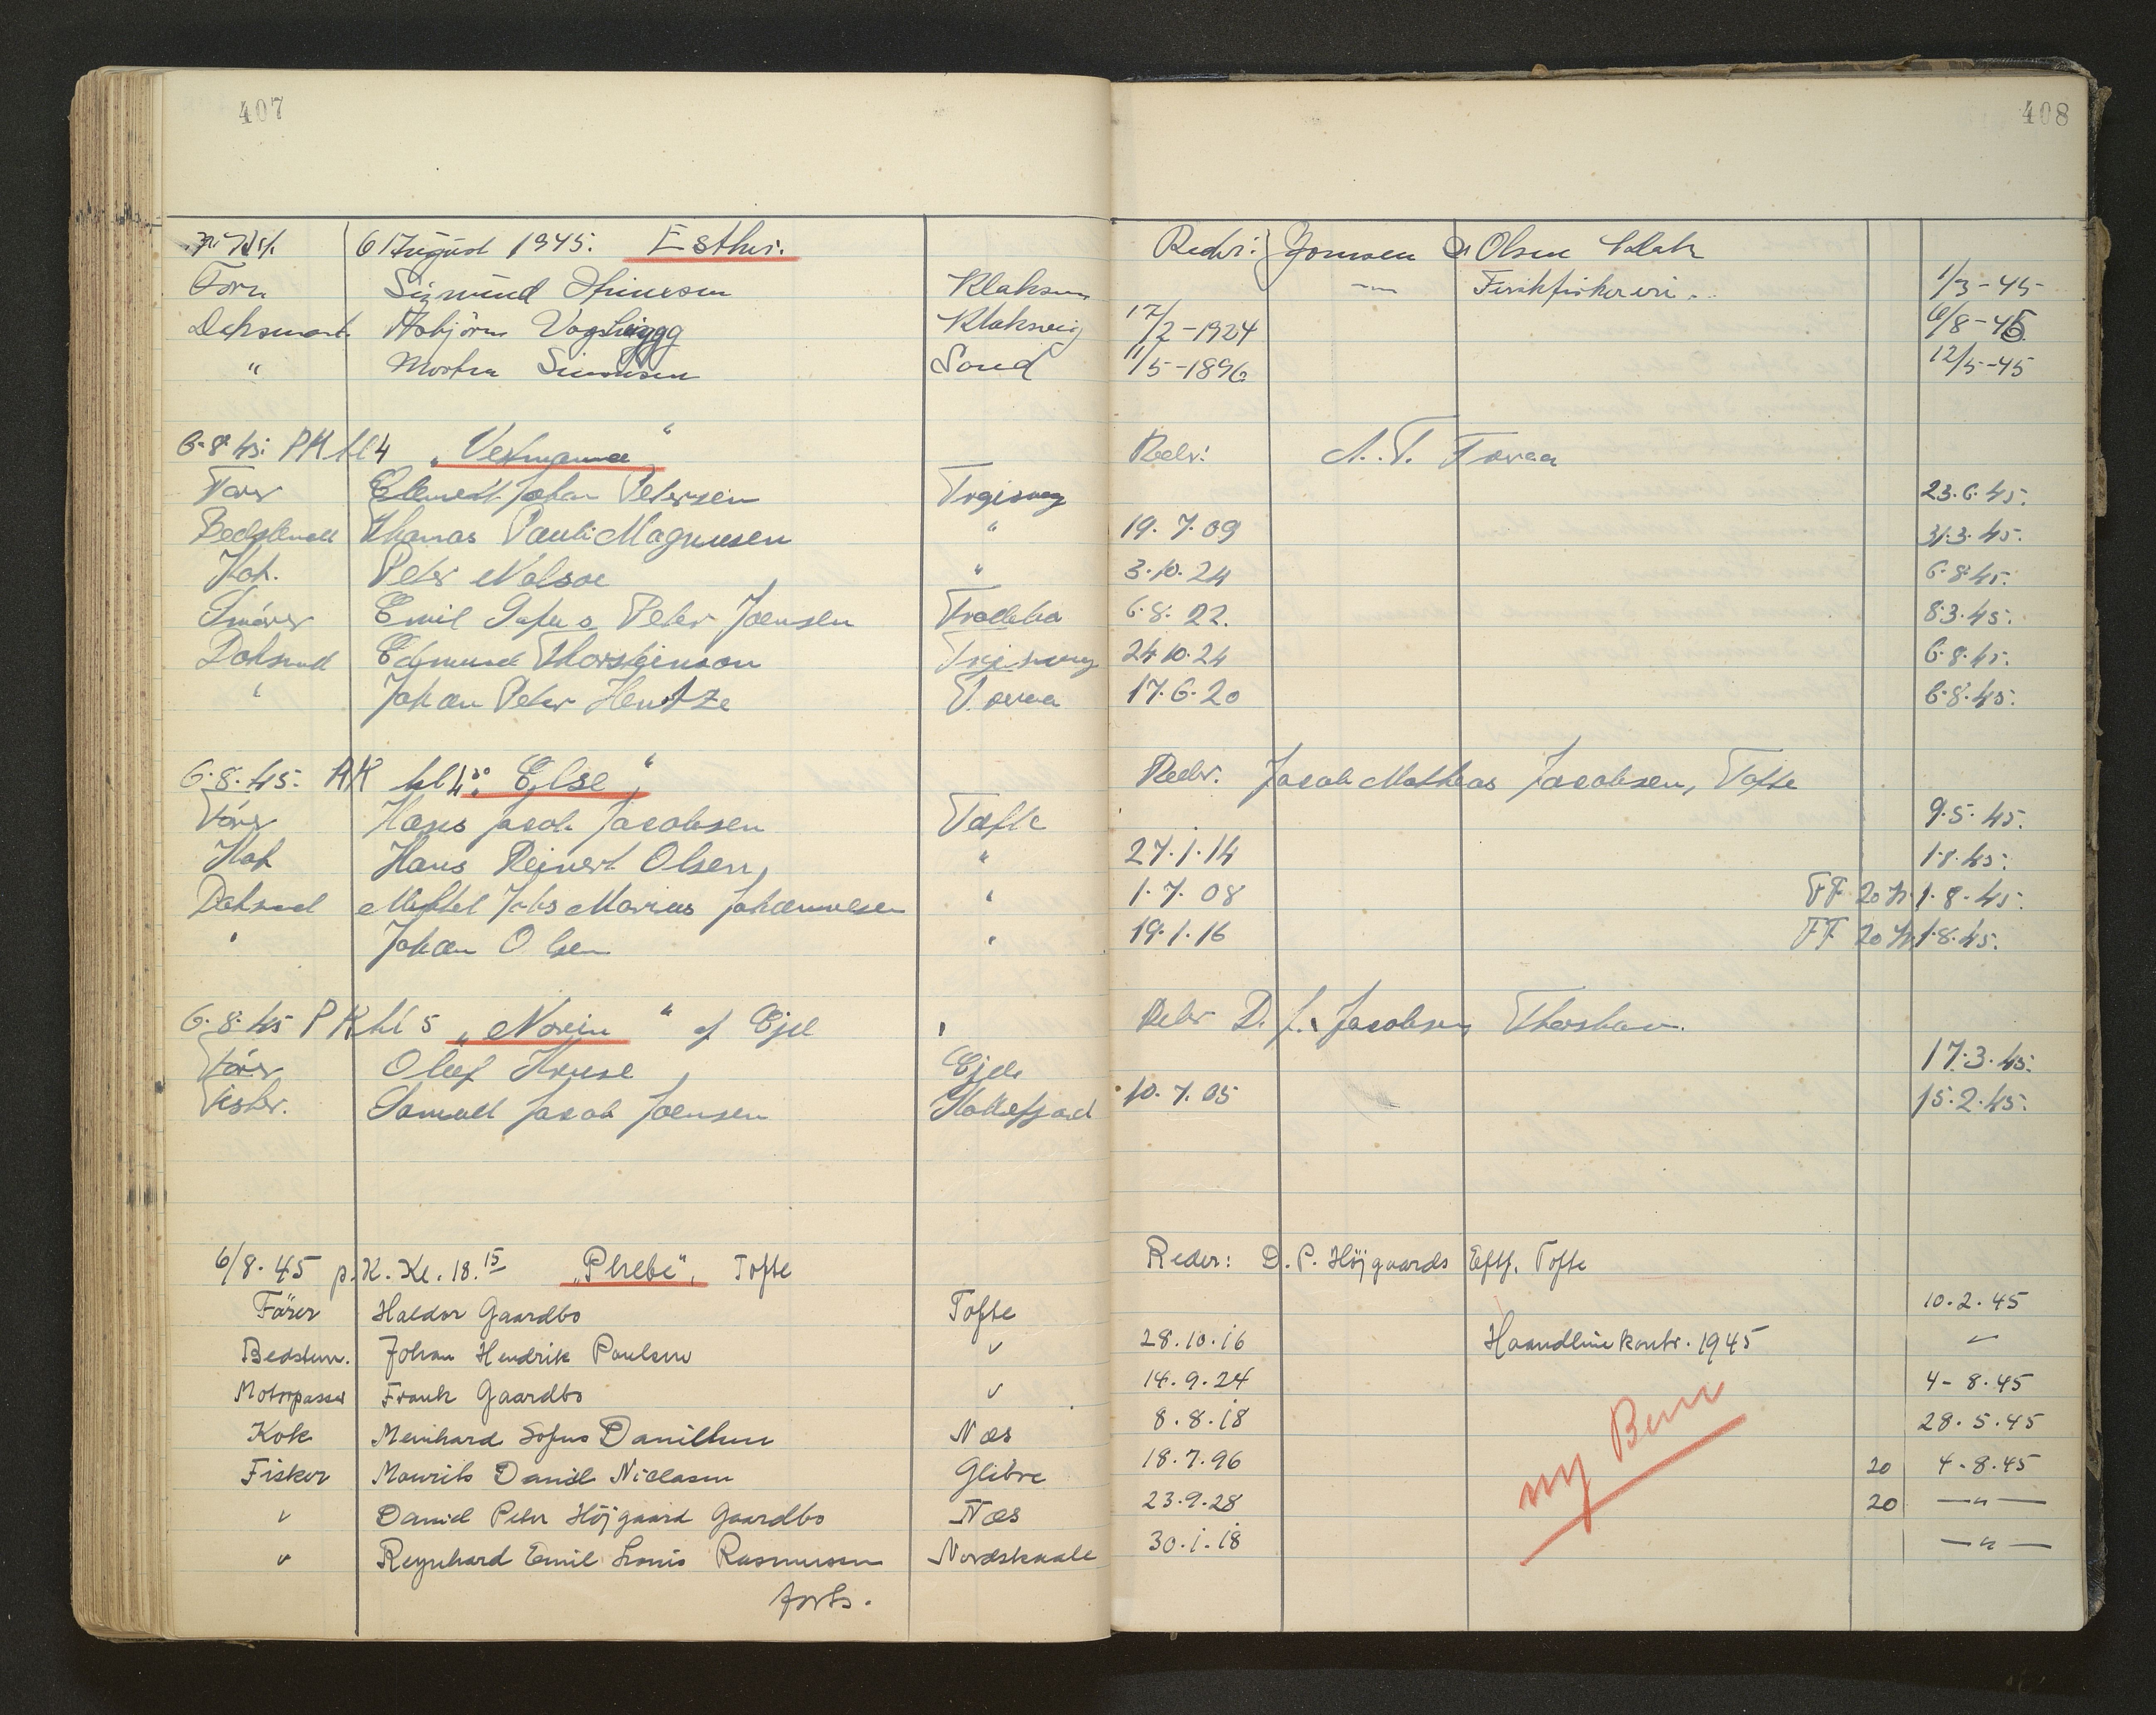 407
408
6 August 1945. Esther. Reder: Joensen & Olsen Klak
Förer Sigmund Klaksv. Ferskfiskeri. 1/3-45
Deksmand Klaksvig 17/2-1924 6/8-45
" Morten Simonsen Sand 11/5-1896 12/5-45
6.8.45. PK kl 4 „Vestmanna“ Reder:
Förer Johan Petersen 23.6.45.
Bedstemand Thomas Pauli Magnussen " 19.7.09 31.3.45.
Kok. Peter Nolsoe " 3.10.24 6.8.45.
Smörer Emil Sofus Peter Joensen 6.8.22. 8.3.45.
Deksmd Edmund Thorsteinsson 24.10.24 6.8.45.
" Johan Peter Hentze 17.6.20 6.8.45.
6.8.45. PK kl 4.30 „Else“ Reder. Jacob Mathias Jacobsen, Tofte
Förer Hans Jacob Jacobsen Tofte 9.5.45.
Kok Hans Reinert Olsen " 27.1.14 1.8.45.
Deksmd Johs Marius Johannesen " 1.7.08 FF 20 kr. 1.8.45.
" Johan Olsen " 19.1.16 FF 20 kr. 1.8.45.
6.8.45 PK kl 5 „Norein“ af Ejde Reder D. J. Jacobsen Thorshavn.
Förer Oluf Kruse Ejde 17.3.45.
Fisker. Samuel Jacob Joensen Kollefjord 10.7.05 15.2.45.
6/8.45 p.K. Kl. 18.15 „Phebe“, Tofte Reder: D. P. Höjgaards Eftf. Tofte
Förer Haldor Gaardbo Tofte 10.2.45
Bedstem. Johan Hendrik Poulsen " 28.10.16 Haandlinekontr. 1945 "
Motorpasser Frank Gaardbo " 14.9.24 4-8.45
Kok Meinhard Sofus Danielsen Næs 8.8.18 28.5.45
Fisker Mourits Daniel Niclasen Glibre 18.7.96 20 4-8.45
" Daniel Peter Höjgaard Gaardbo Næs 23.9.28 20 —"—
" Reynhard Emil Louis Rasmussen Nordskaale 30.1.18 —"—
ny Bem
forts.